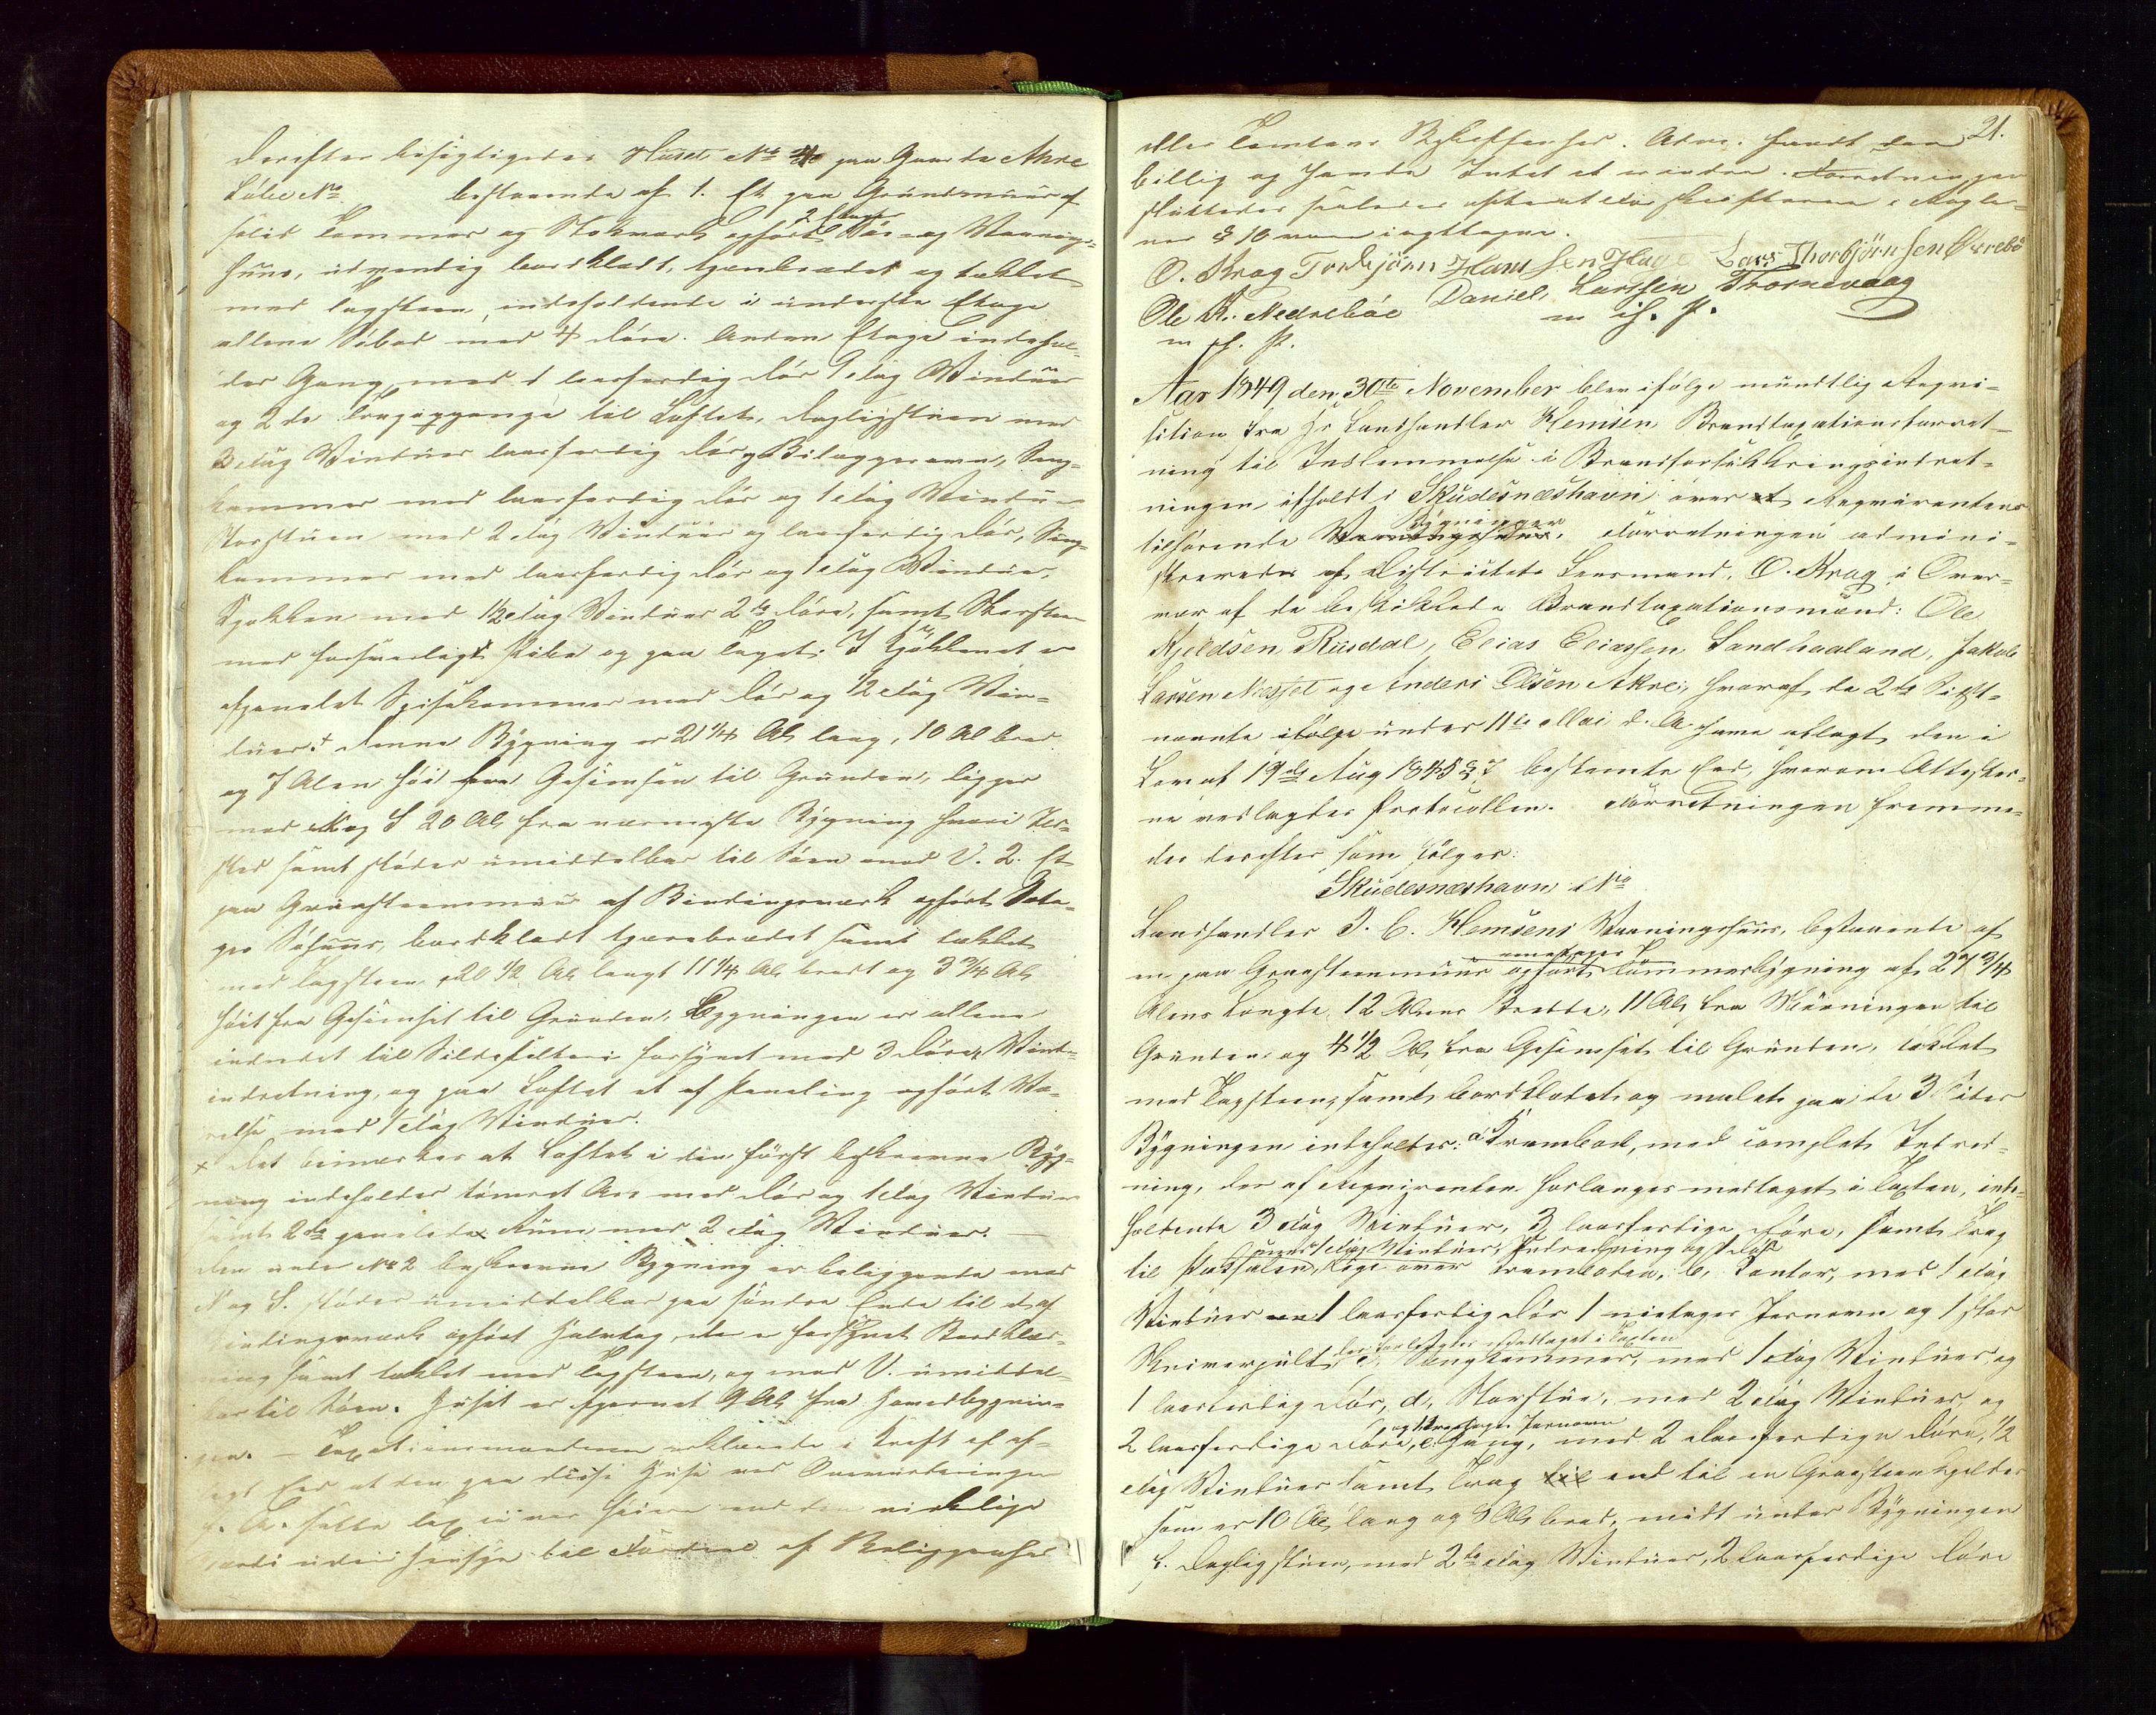 Derefter besigtigedes Huset No 40 paa Gaarden Akre
Löbe No bestaaende af 1. Et paa Grundmuur af
solid Tømmer og Stokværk opført 2 Etages Sø- og Vaanings-
huus, udvendig bordklædt, tjærebrædet og tækket
med Tagsteen, indeholdende i underste Etage
allene Søbod med 4 Døre. Anden Etage indehol-
der Gang med 1 laasfærdig Dør 1 Fag Vinduer
og 2de Trapopgange til Loftet, Dagligstuen med
3 Fag Vinduer laasfærdig Dør og Bilæggerovn, Seng-
kammer med laasfærdig Dør og 1 Fag Vinduer
Storstuen med 2 Fag Vinduer og laasfærdig Dør, Seng-
kammer med laasfærdig Dør og 1 Fag Vinduer,
Kjøkken med 1½ Fag Vinduer 2de Døre, samt Skorsteen
med forsvarligt Pibe og paa Taget. I Kjøkkenet er
afpanelet Spisekammer med Dør og ½ Fag Vin-
duer + Denne Bygning er 21¼ Al. lang, 10 Al. bred
og 7 Alen høi fra Gesimsen til Grunden, ligger
mod N og S 20 Al. fra nærmeste Bygning hvori Ild-
sted samt støder umiddelbar til Søen mod V. 2. Et
paa Graasteensmuur af Bindingsværk opført
Søhuus, bordklædt tjærebrædet samt tækket
med Tagsteen, 20½ Al. langt 11¼ Al. bredt og 3¾ Al.
høit fra Gesimset til Grunden. Bygningen er allene
indredet til Sildesalteri forsynet med 3 Døre,
indretning, og paa Loftet et af Paneling opført Væ-
relse med 1 Fag Vinduer.
x Det bemærkes at Loftet i den først beskrevne Byg-
ning indeholder tømret Ark med Dør og 1 Fag Vinduer
samt 2de panelede Rum med 2 Fag Vinduer. —
Den under No 2 beskrevne Bygning er beliggende mod
N og S. støder umiddelbar paa søndre Ende til et af
Bindingsværk opført Halvtag, der er forsynet Bordklæd-
ning samt tækket med Tagsteen, og mod V. umiddel-
bar til Søen. Huset er fjernet 9 Al. fra Hovedbygnin-
gen. — Taxationsmændene erklærede i Kraft af af-
lagt Eed at den paa disse Huse ved Omvurderingen
d. A. satte Tax ei var høiere end den virkelige
Værdi uden Hensyn til Fordeel af Beliggenhed
21.
eller Tomtens Beskaffenhed. Adm. fandt den
billig og havde Intet at erindre. Forretningen
sluttedes saaledes efterat Forskrifterne i Regler-
nes § 10 vare iagttagne.
O. Krag Torbjørn Hansen Hage Lars Thorbjörnsen Øvrebö
Ole K. Nedreböe Daniel Larssen Thornevaag
m. p. P. m. i. P.
Aar 1849 den 30te November blev ifølge mundtlig Reqvi-
sition fra Hr Landhandler Hemsen Brandtaxationsforret-
ning til Indlemmelse i Brandforsikkringsindret-
ningen afholdt i Skudesnæshavn over Reqvirentens
tilhørende Bygninger. Forretningen admini-
streredes af Districtets Lensmand, O. Krag i Over-
vær af de beskikkede Brandtaxationsmænd: Ole
Kjeldsen Risdal, Elias Eliassen Sandhaaland, Jakob
Larsen Næsset og Anders Olsen Akre, hvoraf de 2de Sidst-
nævnte ifølge under 11te Mai d. A. have aflagt den i
Lov af 19de Aug 1845 § 7 bestemte Eed, hvorom Attester-
ne vedlagdes Protocollen. Forretningen fremme-
des derefter som følger:
Skudesnæshavn No
Landhandler J. C. Hemsens Vaaningshuus, bestaaende af
en paa Graasteensmuur opført eenetages Tømmerbygning af 27¾
Alens Længde, 12 Alens Bredde, 11 Al. fra Mønningen til
Grunden og 4½ Al. fra Gesimset til Grunden, tækket
med Tagsteen, samt bordklædet og malet paa de 3 Sider
Bygningen indeholder: a, Krambod, med complet Indred-
ning, der af Reqvirenten forlanges medtaget i Taxten, inde-
holdende 3 Fag Vinduer, 3 laasfærdige Døre, samt Trap
til Pakboden, lige over Kramboden, b, Contor, med 1 Fag
Vinduer 1 laasfærdig Dør 1 toetages Jernovn og 1 stor
Skriverpult, der forlanges medtaget i Taxten c, Sengkammer, med 1 Fag Vinduer, og
1 laasfærdig Dør, d, Storstue, med 2 Fag Vinduer, og
2 laasfærdige Døre, og 1 treetages Jernovn e, Gang, med 2 laasfærdige Døre, ½
Fag Vinduer samt Trap ned til en Graasteenskjelder
som er 10 Al. lang og 8 Al. bred, midt under Bygningen
f. Dagligstuen, med 2de Fag Vinduer, 2 laasfærdige Døre